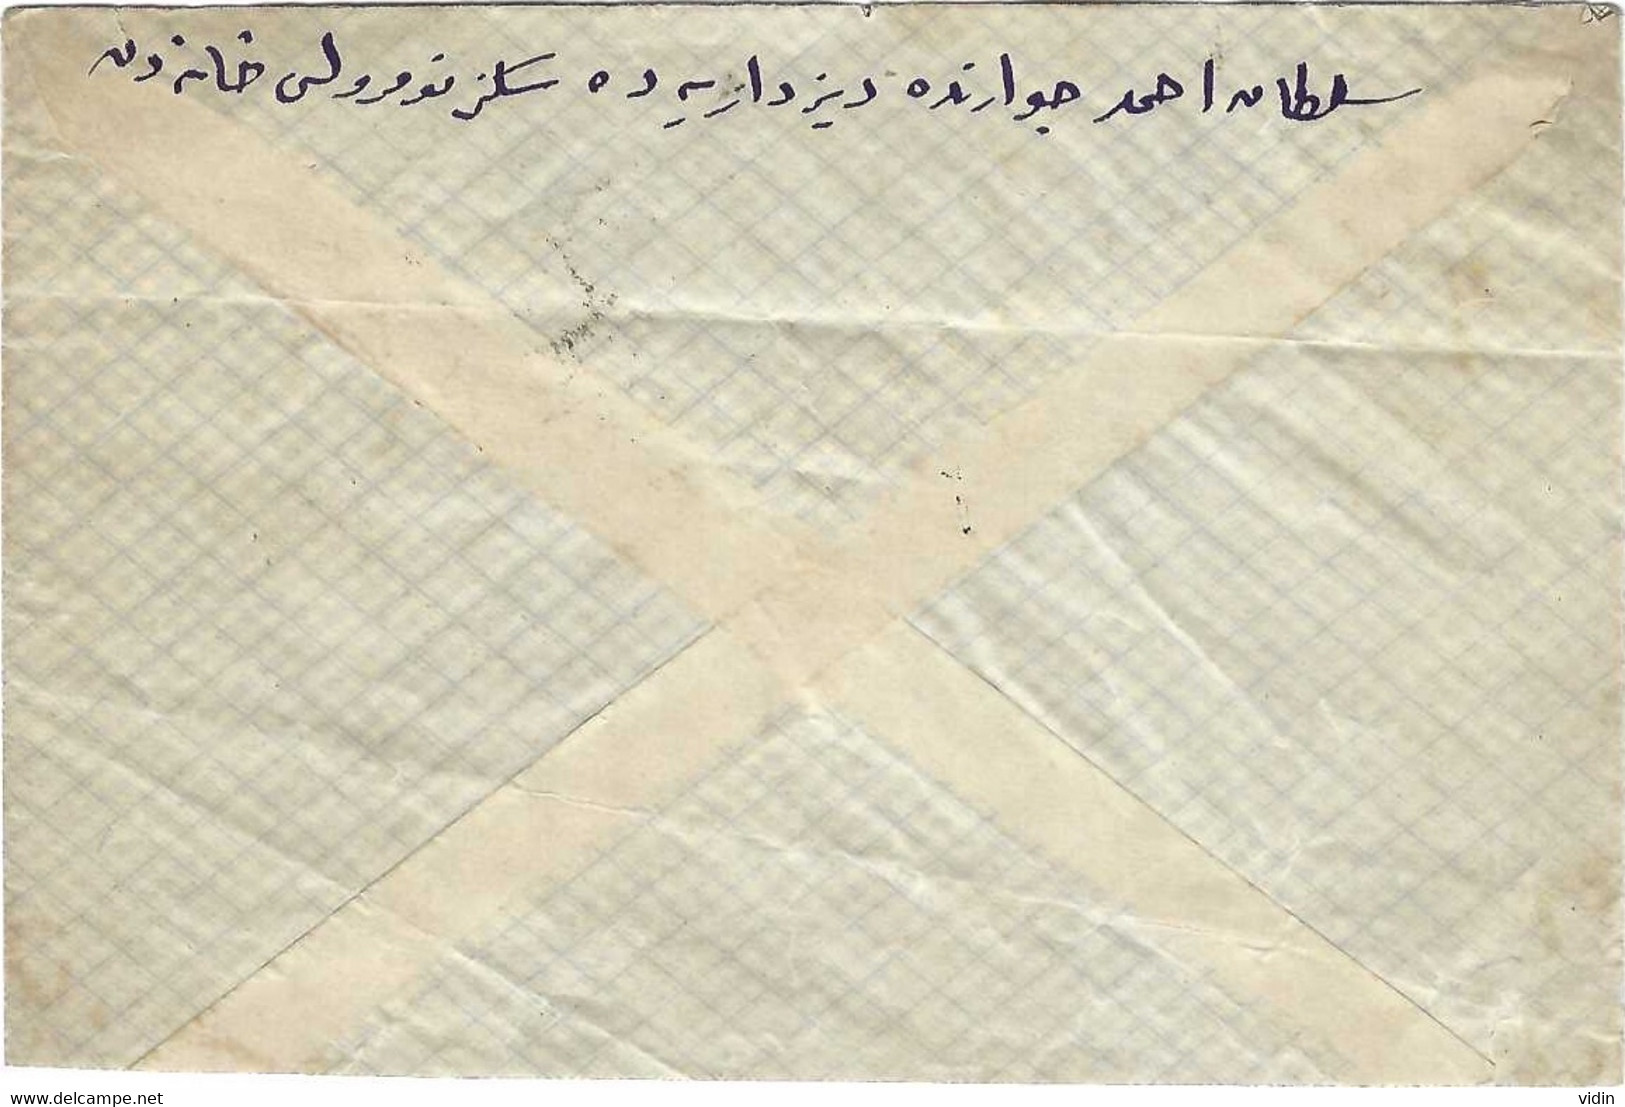 سلطان احمد جوارنده ديزداريه ده سكز نومرولى خانه دن
www.delcampe.net
vidin